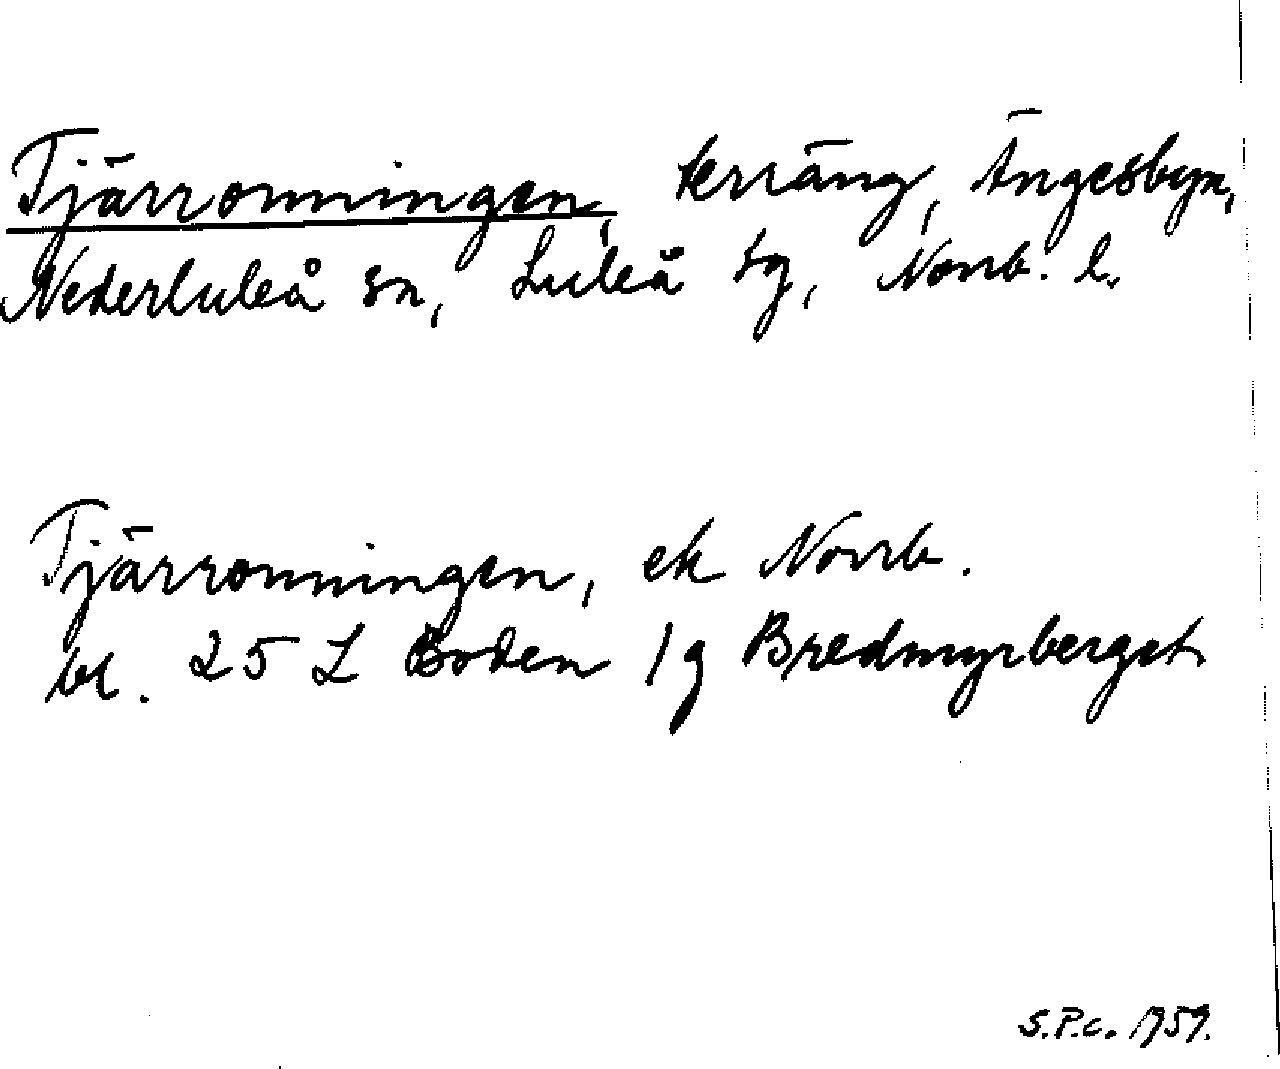 Tjärronningen, terräng, Ängesbyn,
Nederluleå sn, Luleå tg, Norrb. l.
Tjärronningen, ek Norrb.
bl. 25 L Boden 1g Bredmyrberget
S.P.C. 1959.